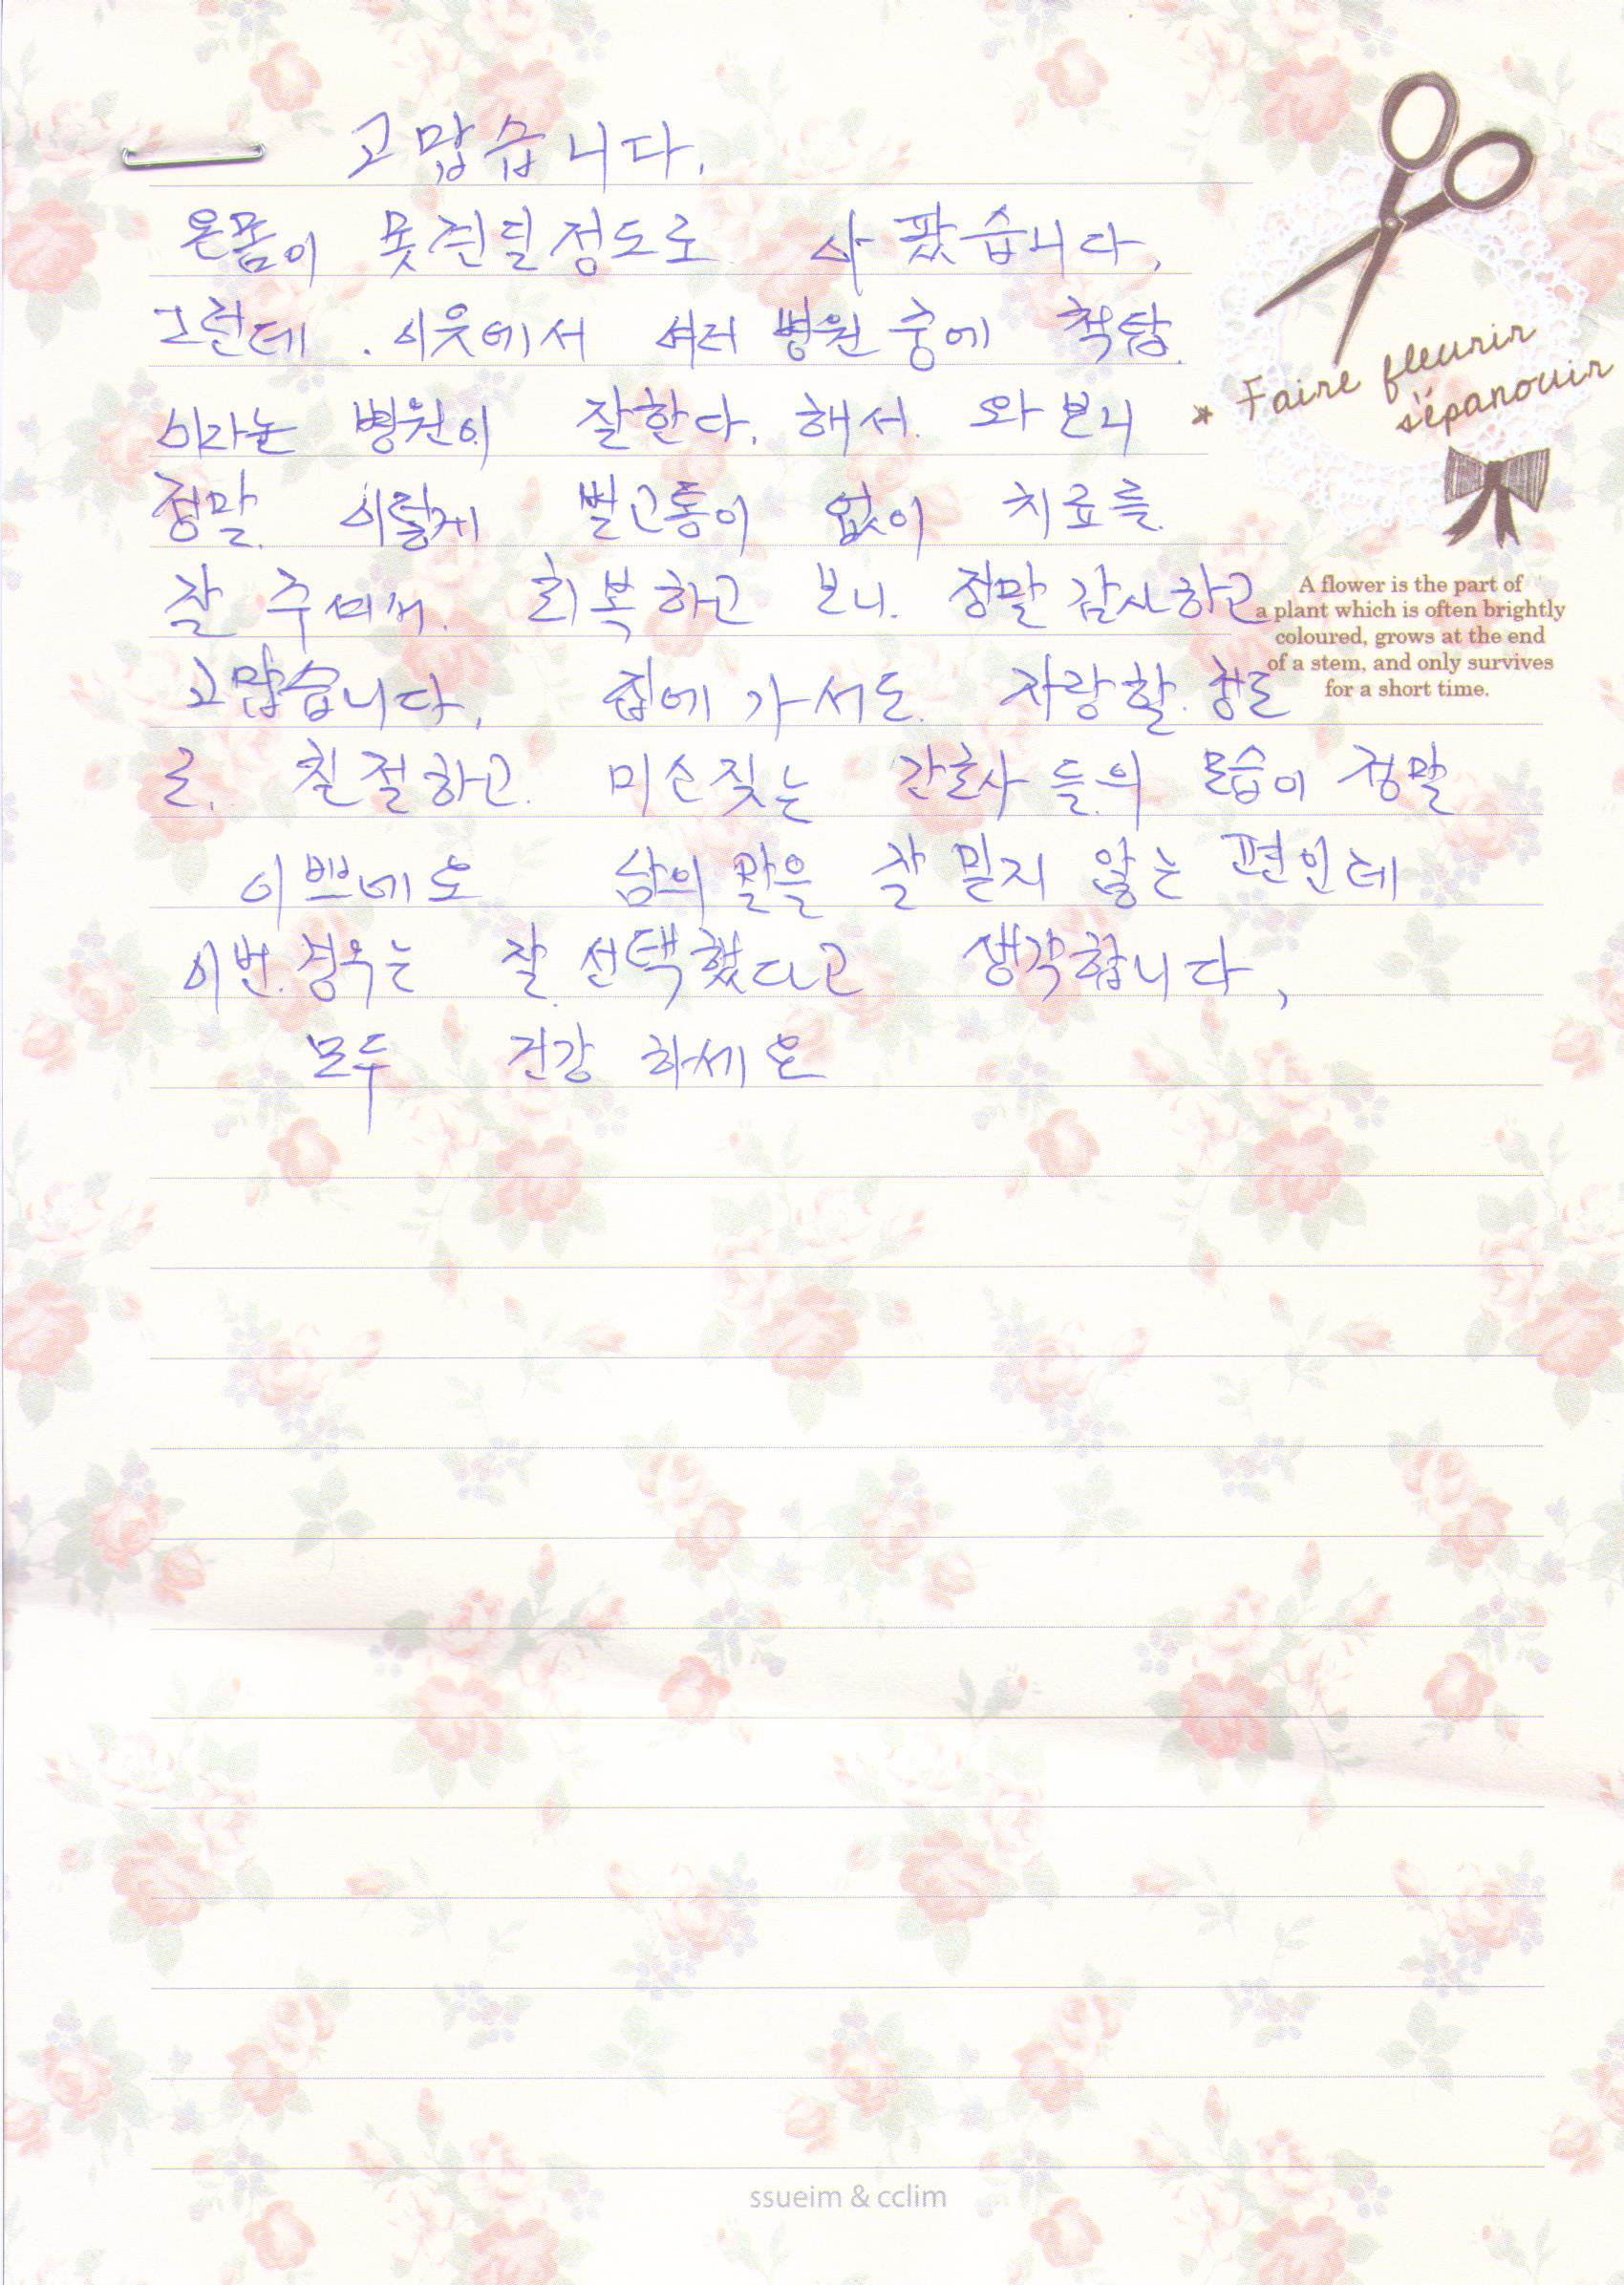 고맙습니다.
온몸이 못견딜정도로 아팠습니다.
그런데. 이웃에서 여러 병원 중에 척탑.
이라는 병원이 잘한다. 해서. 와 보니
정말. 이렇게 별고통이 없이 치료를.
잘 주셔서. 회복하고 보니. 정말 감사하고
고맙습니다. 집에 가서도. 자랑할. 정도
로. 친절하고. 미소짓는 간호사 들의 모습이 정말
이쁘네요 남의 말을 잘 믿지 않는 편인데
이번. 경우는 잘. 선택했다고 생각합니다,
모두 건강 하세요
* Faire fleurir
s'épanouir
A flower is the part of
a plant which is often brightly
coloured, grows at the end
of a stem, and only survives
for a short time.
ssueim & cclim